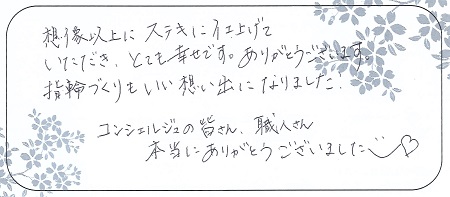 想像以上に ステキに仕上げて
いただき、とても幸せです。ありがとうございます。
指輪づくりもいい想い出になりました！
コンシェルジュの皆さん、職人さん
本当にありがとうございました